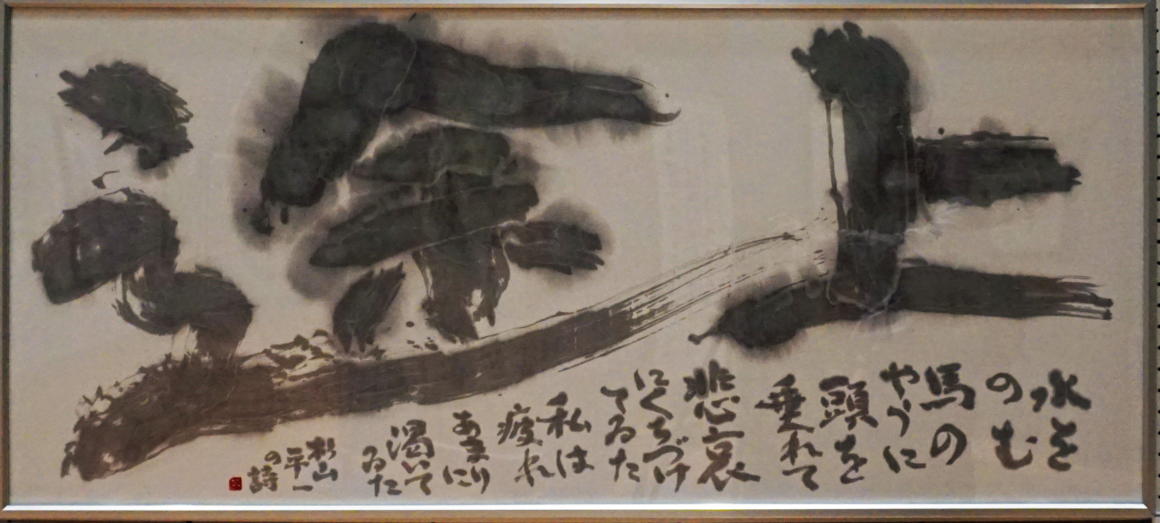 途上
水を
のむ
馬の
やうに
頭を
垂れて
悲哀
にくちづけ
てゐた
私は
疲れ
あまりに
渇いて
ゐた
杉山
平一
の詩